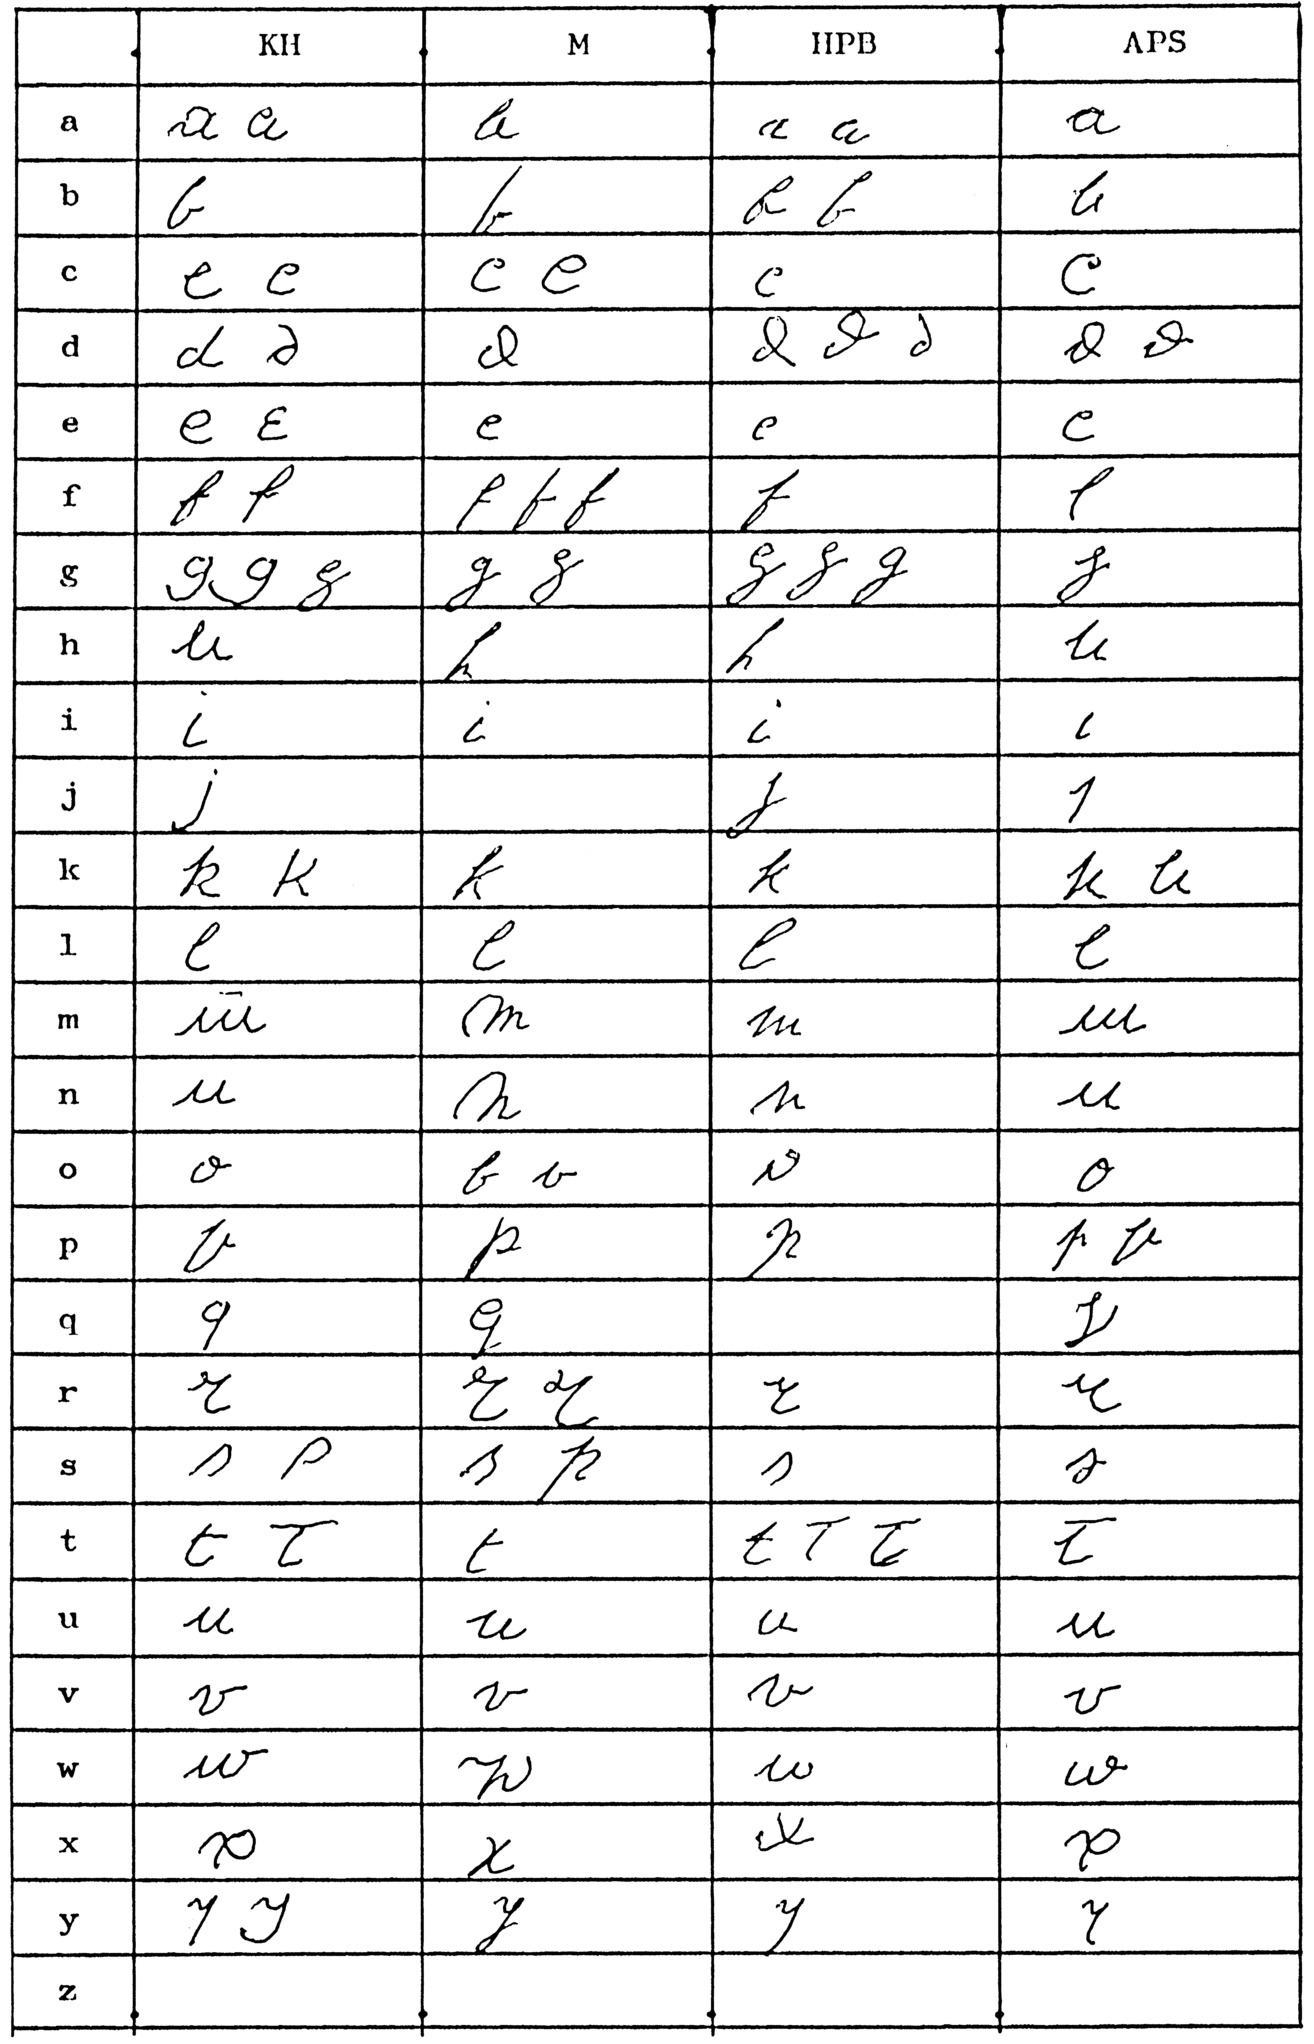 KH M HPB APS
a a a a a a a
b b b b b b
c c c c c c c
d d d d d d d d d
e e e e e e
f f f f f f f f
g g g g g g g g g g
h h h h h
i i i i i
j j j j
k k k k k k k
l l l l l
m m m m m
n n n n n
o o o o o o
p p p p p p
q q q q
r r r r r r
s s s s s s s
t t t t t t t t
u u u u u
v v v v v
w w w w w
x x x x x
y y y y y y
z